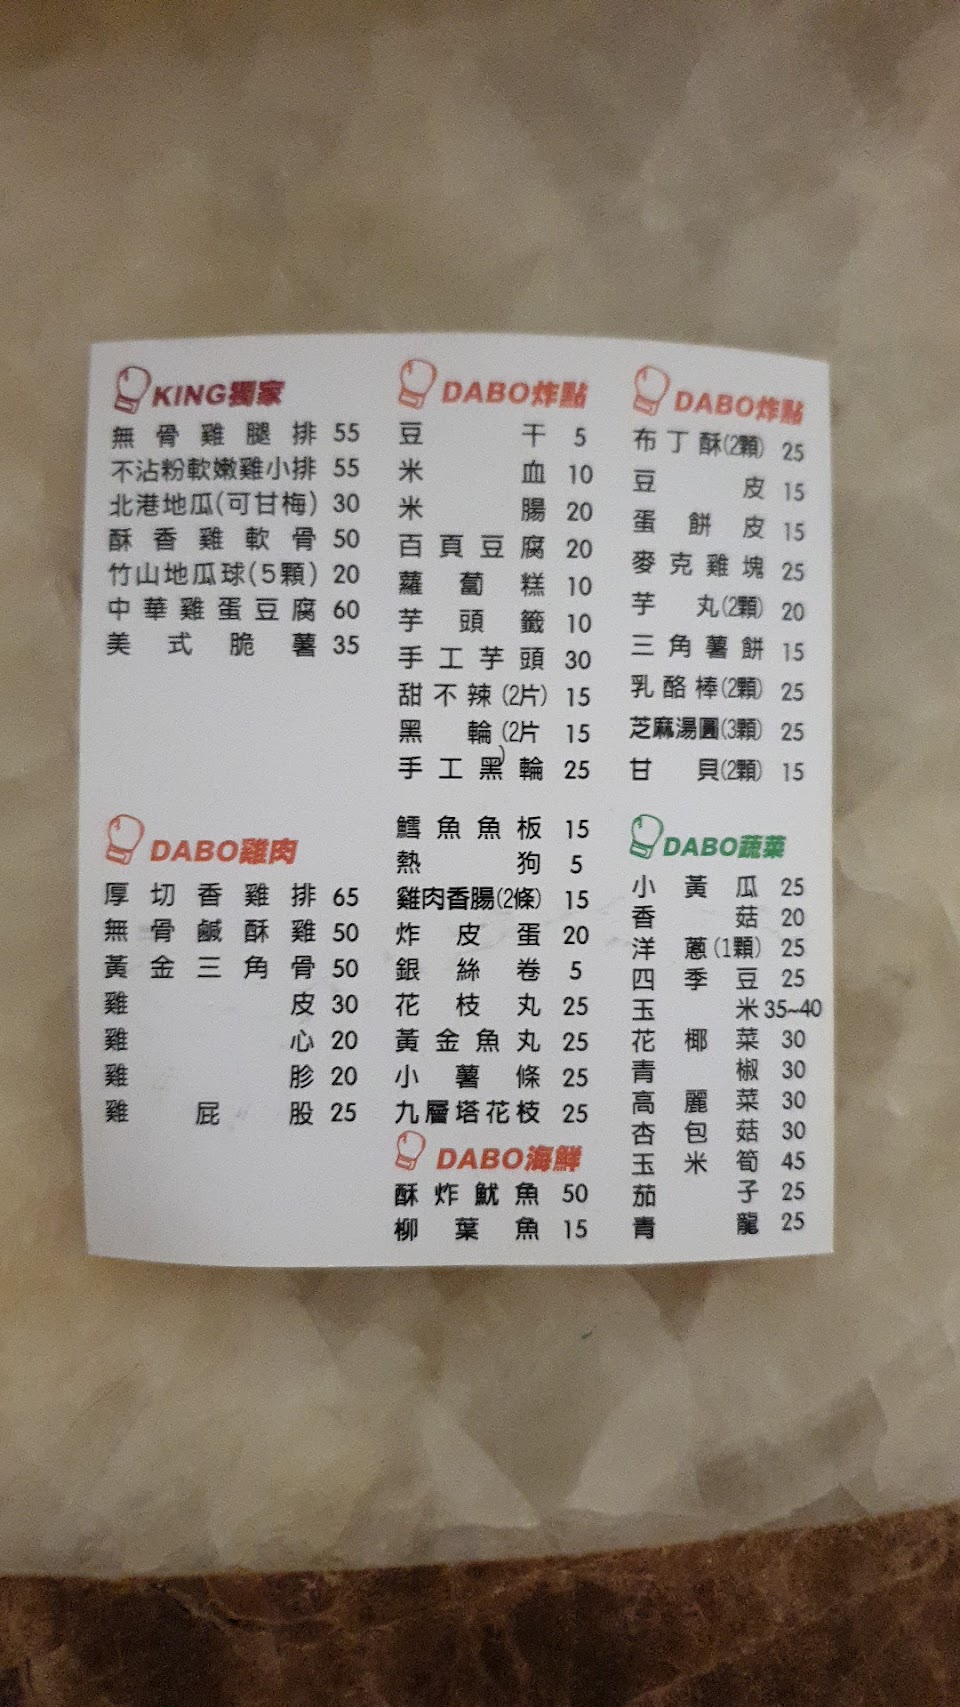 KING獨家
無骨雞腿排 55
不沾粉軟嫩雞小排 55
北港地瓜(可甘梅) 30
酥香雞軟骨 50
竹山地瓜球(5顆) 20
中華雞蛋豆腐 60
美式脆薯 35
DABO雞肉
厚切香雞排 65
無骨鹹酥雞 50
黃金三角骨 50
雞皮 30
雞心 20
雞胗 20
雞屁股 25
DABO炸點
豆干 5
米血 10
米腸 20
百頁豆腐 20
蘿蔔糕 10
芋頭籤 10
手工芋頭 30
甜不辣(2片) 15
黑輪(2片) 15
手工黑輪 25
鱈魚魚板 15
熱狗 5
雞肉香腸(2條) 15
炸皮蛋 20
銀絲卷 5
花枝丸 25
黃金魚丸 25
小薯條 25
九層塔花枝 25
DABO海鮮
酥炸魷魚 50
柳葉魚 15
DABO炸點
布丁酥(2顆) 25
豆皮 15
蛋餅皮 15
麥克雞塊 25
芋丸(2顆) 20
三角薯餅 15
乳酪棒(2顆) 25
芝麻湯圓(3顆) 25
甘貝(2顆) 15
DABO蔬菜
小黃瓜 25
香菇 20
洋蔥(1顆) 25
四季豆 25
玉米 35~40
花椰菜 30
青椒 30
高麗菜 30
杏包菇 30
玉米筍 45
茄子 25
青龍 25